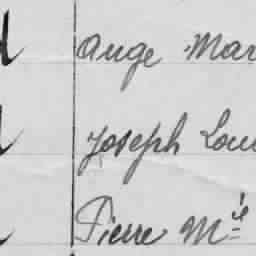 Ange Mar
Joseph Lou
Pierre Mie